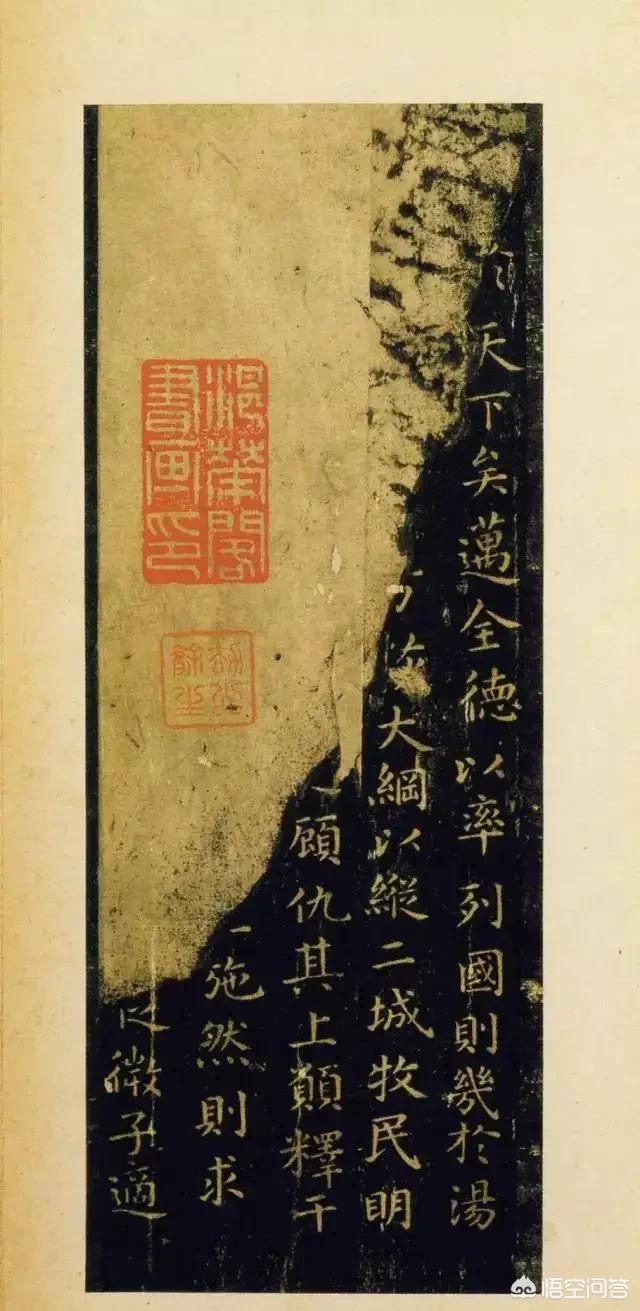 天下矣邁全德以率列國則幾於湯
大綱以縱二城牧民明
顧仇其上願釋干
施然則求
微子適
閣
書畫印
悟空问答